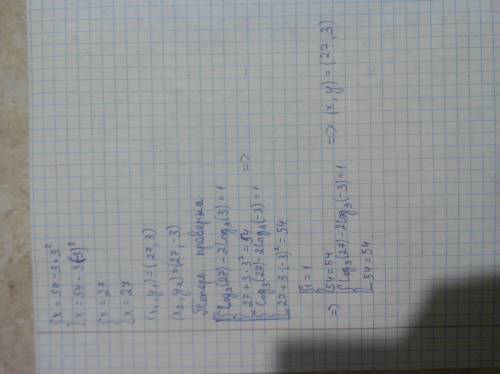 { x = 54 - 3·3²
{ x = 54 - 3(-3)²
{ x = 27
{ x = 27
(x₁, y₁) = (27, 3)
(x₂, y₂) = (27, -3)
Теперь проверка
[ { log₃(27) - 2log₃(3) = 1
{ 27 + 3·3² = 54
{ log₃(27) - 2log₃(-3) = 1 =>
{ 27 + 3·(-3)² = 54
[ { 1 = 1
{ 54 = 54
=> { log₃(27) - 2log₃(-3) = 1 => (x, y) = (27, 3)
{ 54 = 54